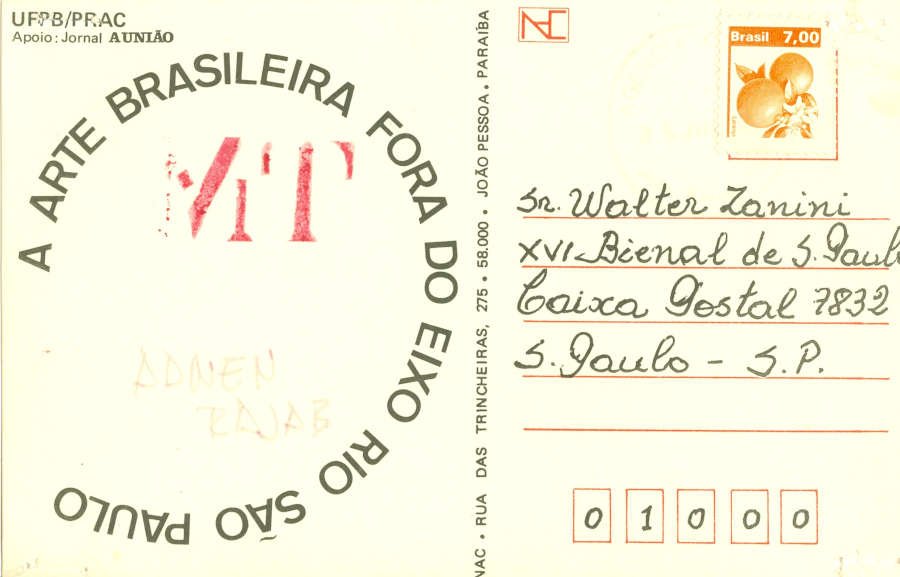 UFPB/PRAC
Apoio: Jornal A UNIÃO
A ARTE BRASILEIRA FORA DO EIXO RIO SÃO PAULO
MT
ADNEN
RAJAB
NAC • RUA DAS TRINCHEIRAS, 275 • 58.000 • JOÃO PESSOA • PARAÍBA
NAC
Brasil 7,00
Sr. Walter Zanini
XVI Bienal de S. Paulo
Caixa Postal 7832
S. Paulo - S.P.
0 1 0 0 0